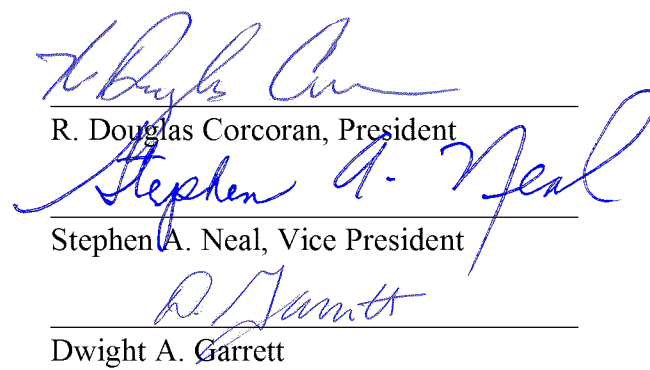 R. Douglas Corcoran
R. Douglas Corcoran, President
Stephen A. Neal
Stephen A. Neal, Vice President
D. Garrett
Dwight A. Garrett